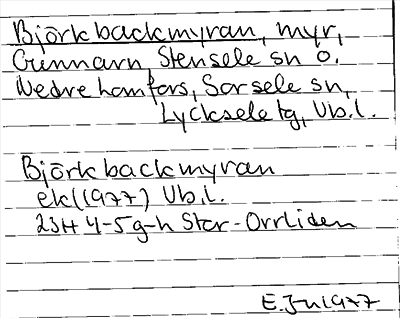 Björkbackmyran, myr,
Gunnarn, Stensele sn o.
Nedre hamfors, Sorsele sn,
Lycksele tg, Vb.l.
Björkbackmyran
ek (1977) Vb.l.
23H 4-5 g-h Stor-Orrliden
E.Jn 1977